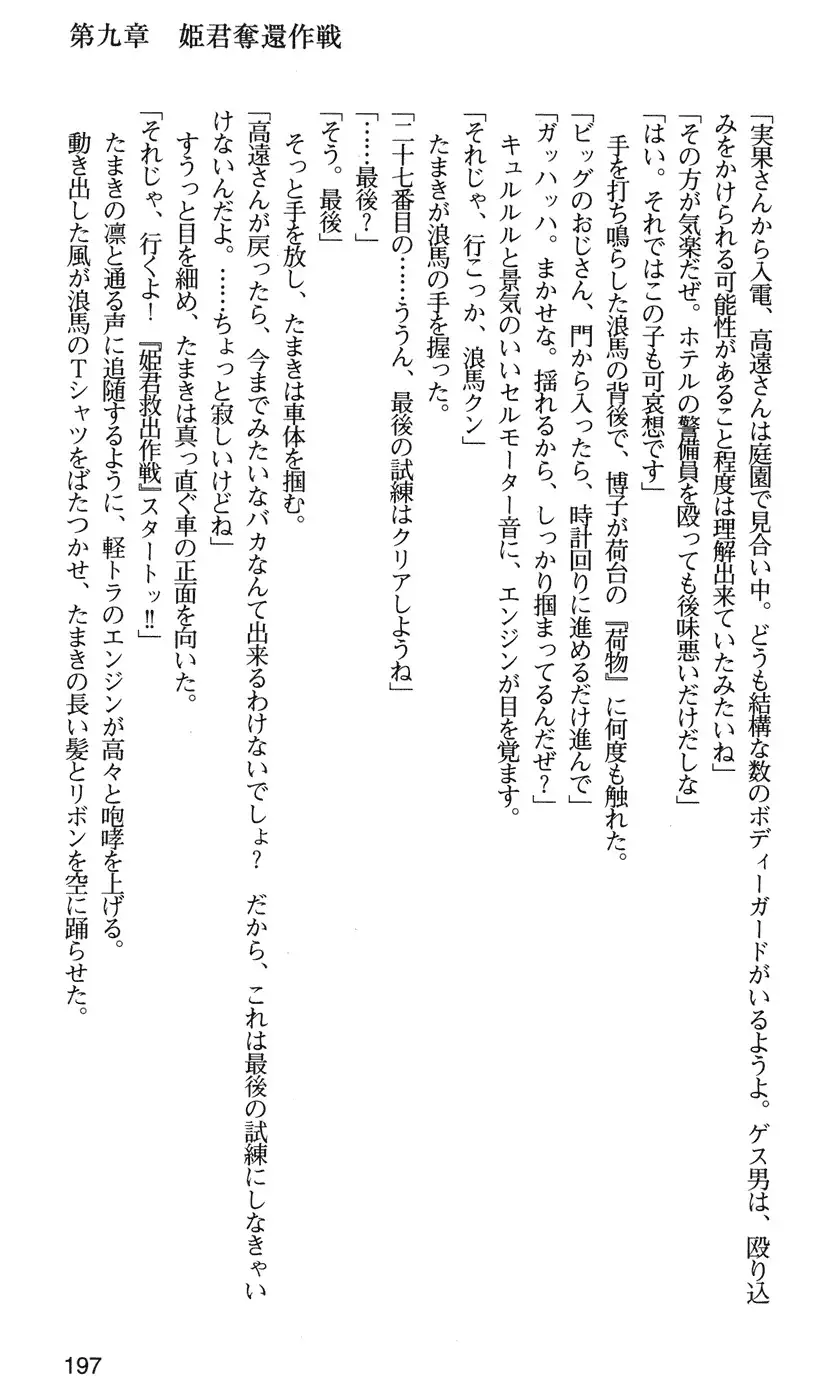 第九章　姫君奪還作戦
「実果さんから入電、高遠さんは庭園で見合い中。どうも結構な数のボディーガードがいるようよ。ゲス男は、殴り込
みをかけられる可能性があること程度は理解出来ていたみたいね」
「その方が気楽だぜ。ホテルの警備員を殴っても後味悪いだけだしな」
「はい。それではこの子も可哀想です」
　手を打ち鳴らした浪馬の背後で、博子が荷台の『荷物』に何度も触れた。
「ビッグのおじさん、門から入ったら、時計回りに進めるだけ進んで」
「ガッハッハ。まかせな。揺れるから、しっかり掴まってるんだぜ？」
　キュルルルと景気のいいセルモーター音に、エンジンが目を覚ます。
「それじゃ、行こっか、浪馬クン」
　たまきが浪馬の手を握った。
「二十七番目の……ううん、最後の試練はクリアしようね」
「……最後？」
「そう。最後」
　そっと手を放し、たまきは車体を掴む。
「高遠さんが戻ったら、今までみたいなバカなんて出来るわけないでしょ？　だから、これは最後の試練にしなきゃい
けないんだよ。……ちょっと寂しいけどね」
　すうっと目を細め、たまきは真っ直ぐ車の正面を向いた。
「それじゃ、行くよ！　『姫君救出作戦』スタートッ‼」
　たまきの凛と通る声に追随するように、軽トラのエンジンが高々と咆哮を上げる。
　動き出した風が浪馬のTシャツをばたつかせ、たまきの長い髪とリボンを空に踊らせた。
197